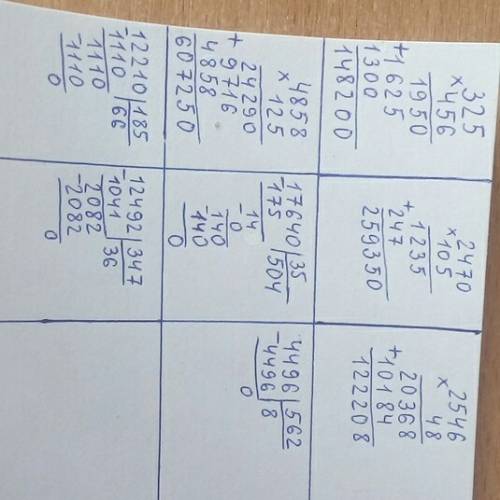 325
× 456
1950
+ 1625
1300
148200
2470
× 105
1235
+ 247
259350
2546
× 48
20368
+ 10184
122208
4858
× 125
24290
+ 9716
4858
607250
17640 | 35
- 175 | 504
14
- 0
140
- 140
0
- 4496 | 562
4496 | 8
0
- 12210 | 185
1110 | 66
- 1110
1110
0
- 12492 | 347
1041 | 36
- 2082
2082
0